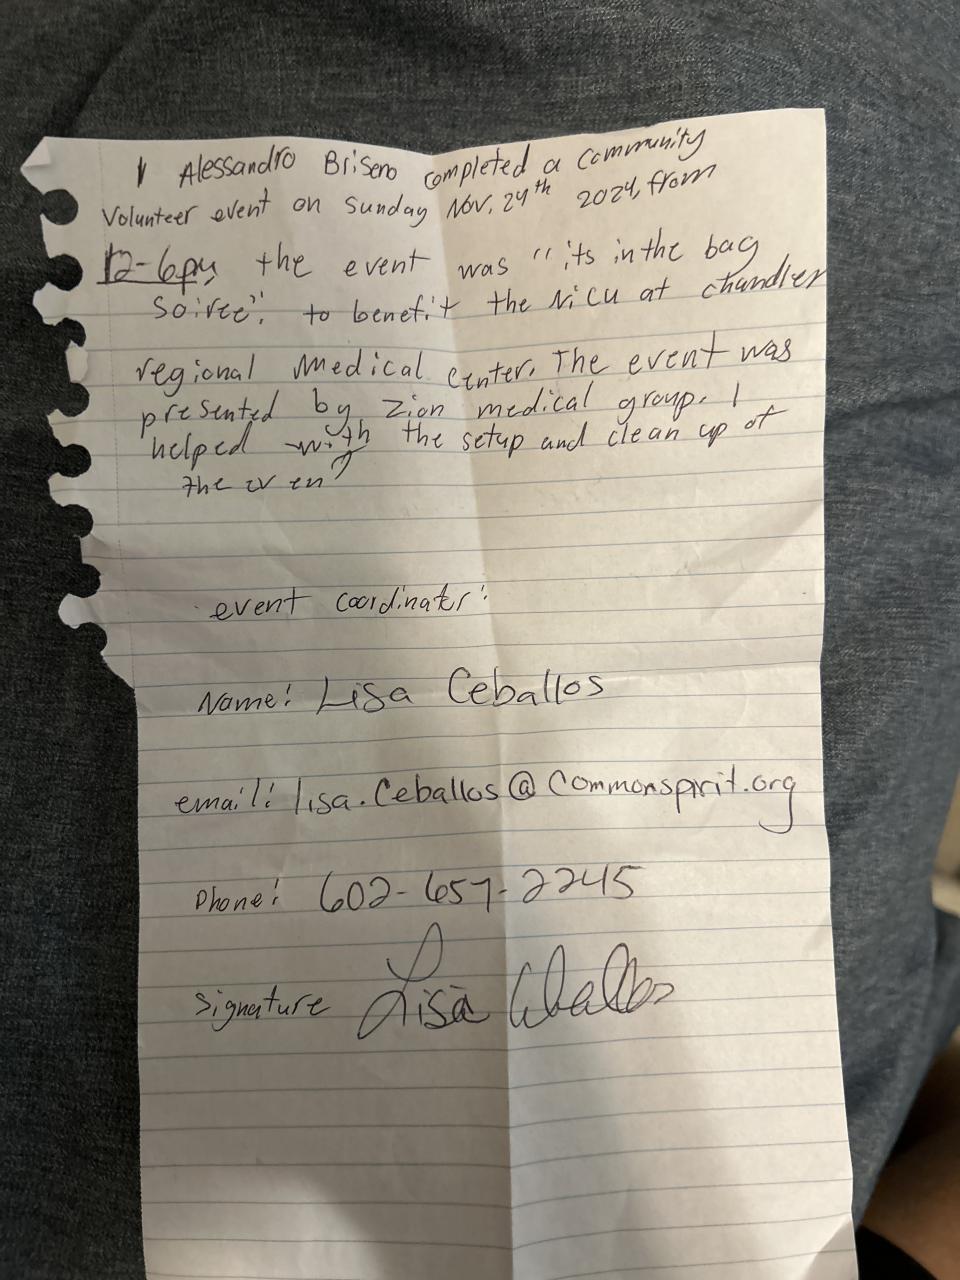 I Alessandro Briseno completed a community
Volunteer event on Sunday Nov. 24th 2024, from
12-6pm, the event was "its in the bag
soiree", to benefit the NICU at chandler
regional medical center. The event was
presented by Zion medical group. I
helped with the setup and clean up of
the event
event coordinator:
Name: Lisa Ceballos
email: lisa.Ceballos@Commonspirit.org
Phone: 602-657-2245
Signature Lisa Ceballos